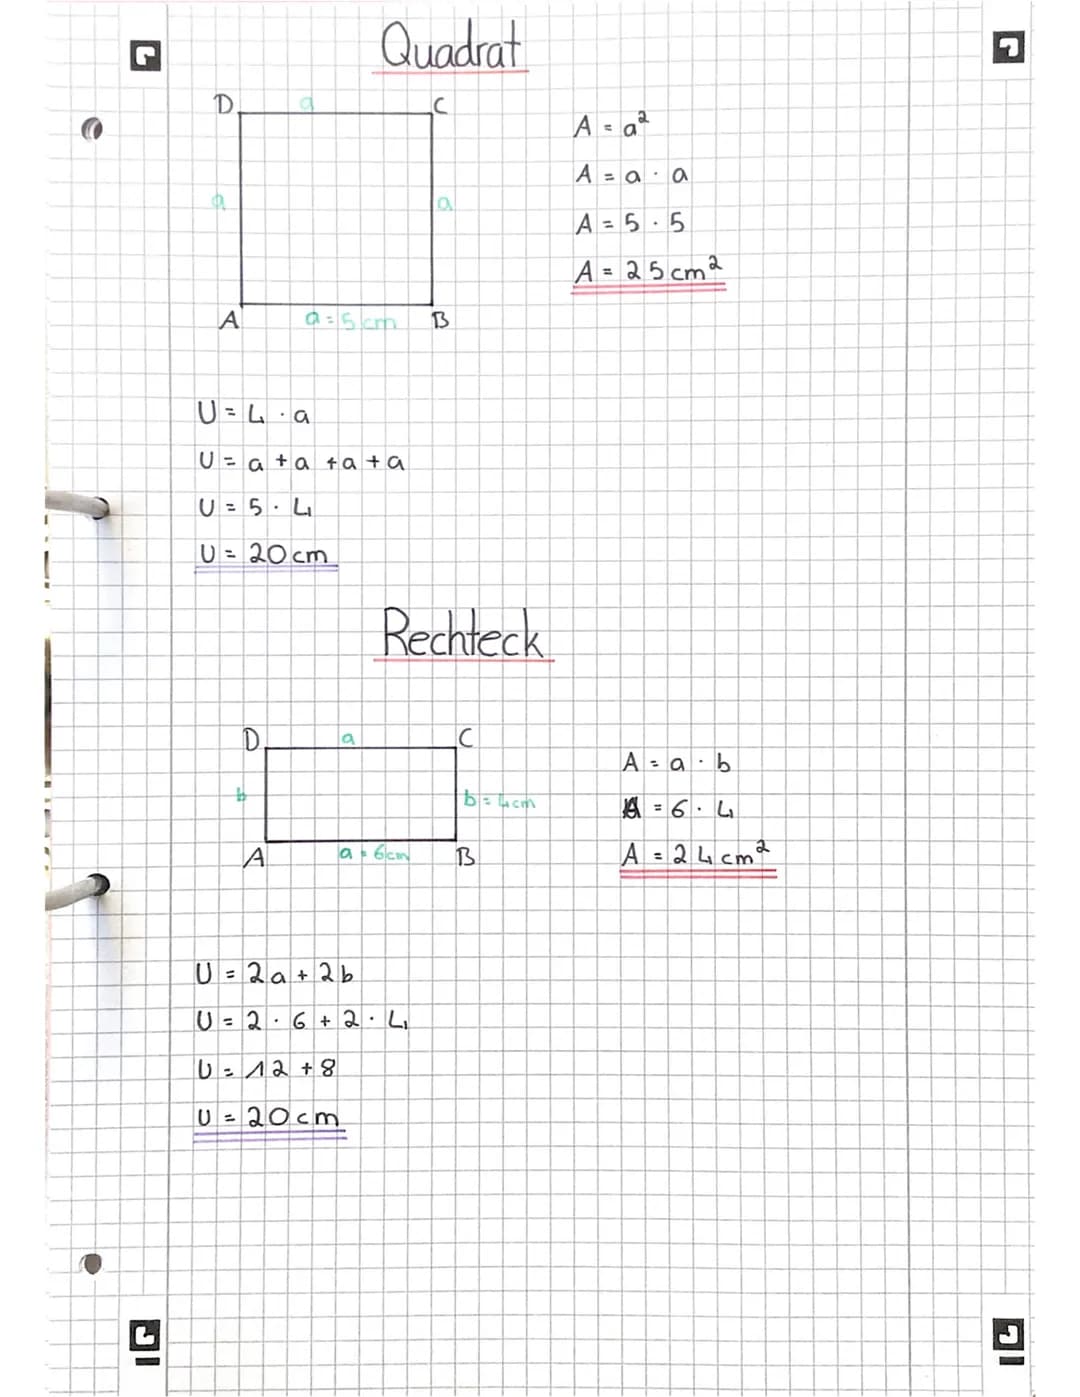 Quadrat
D a C
a a
A a = 5 cm B
A = a²
A = a · a
A = 5 · 5
A = 25 cm²
U = 4 · a
U = a + a + a + a
U = 5 · 4
U = 20 cm
Rechteck
D a C
b b = 4cm
A a = 6cm B
A = a · b
A = 6 · 4
A = 24 cm²
U = 2a + 2b
U = 2 · 6 + 2 · 4
U = 12 + 8
U = 20 cm